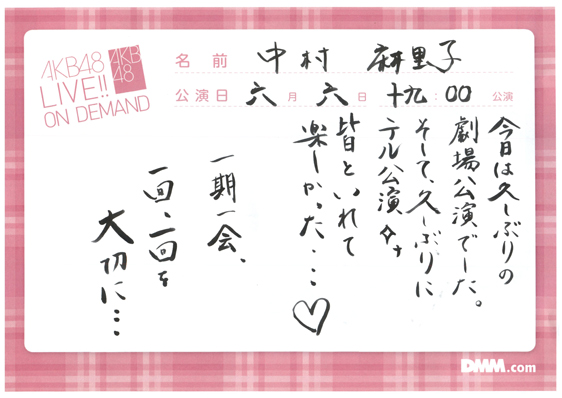 AKB48
LIVE!!
ON DEMAND
AKB
48
名前 中村 麻里子
公演日 六月 六日 十九:00 公演
今日は久しぶりの
劇場公演でした。
そして、久しぶりに
テル公演
皆といれて
楽しかった...♡
一期一会、
一回、一回を
大切に...
DMM.com